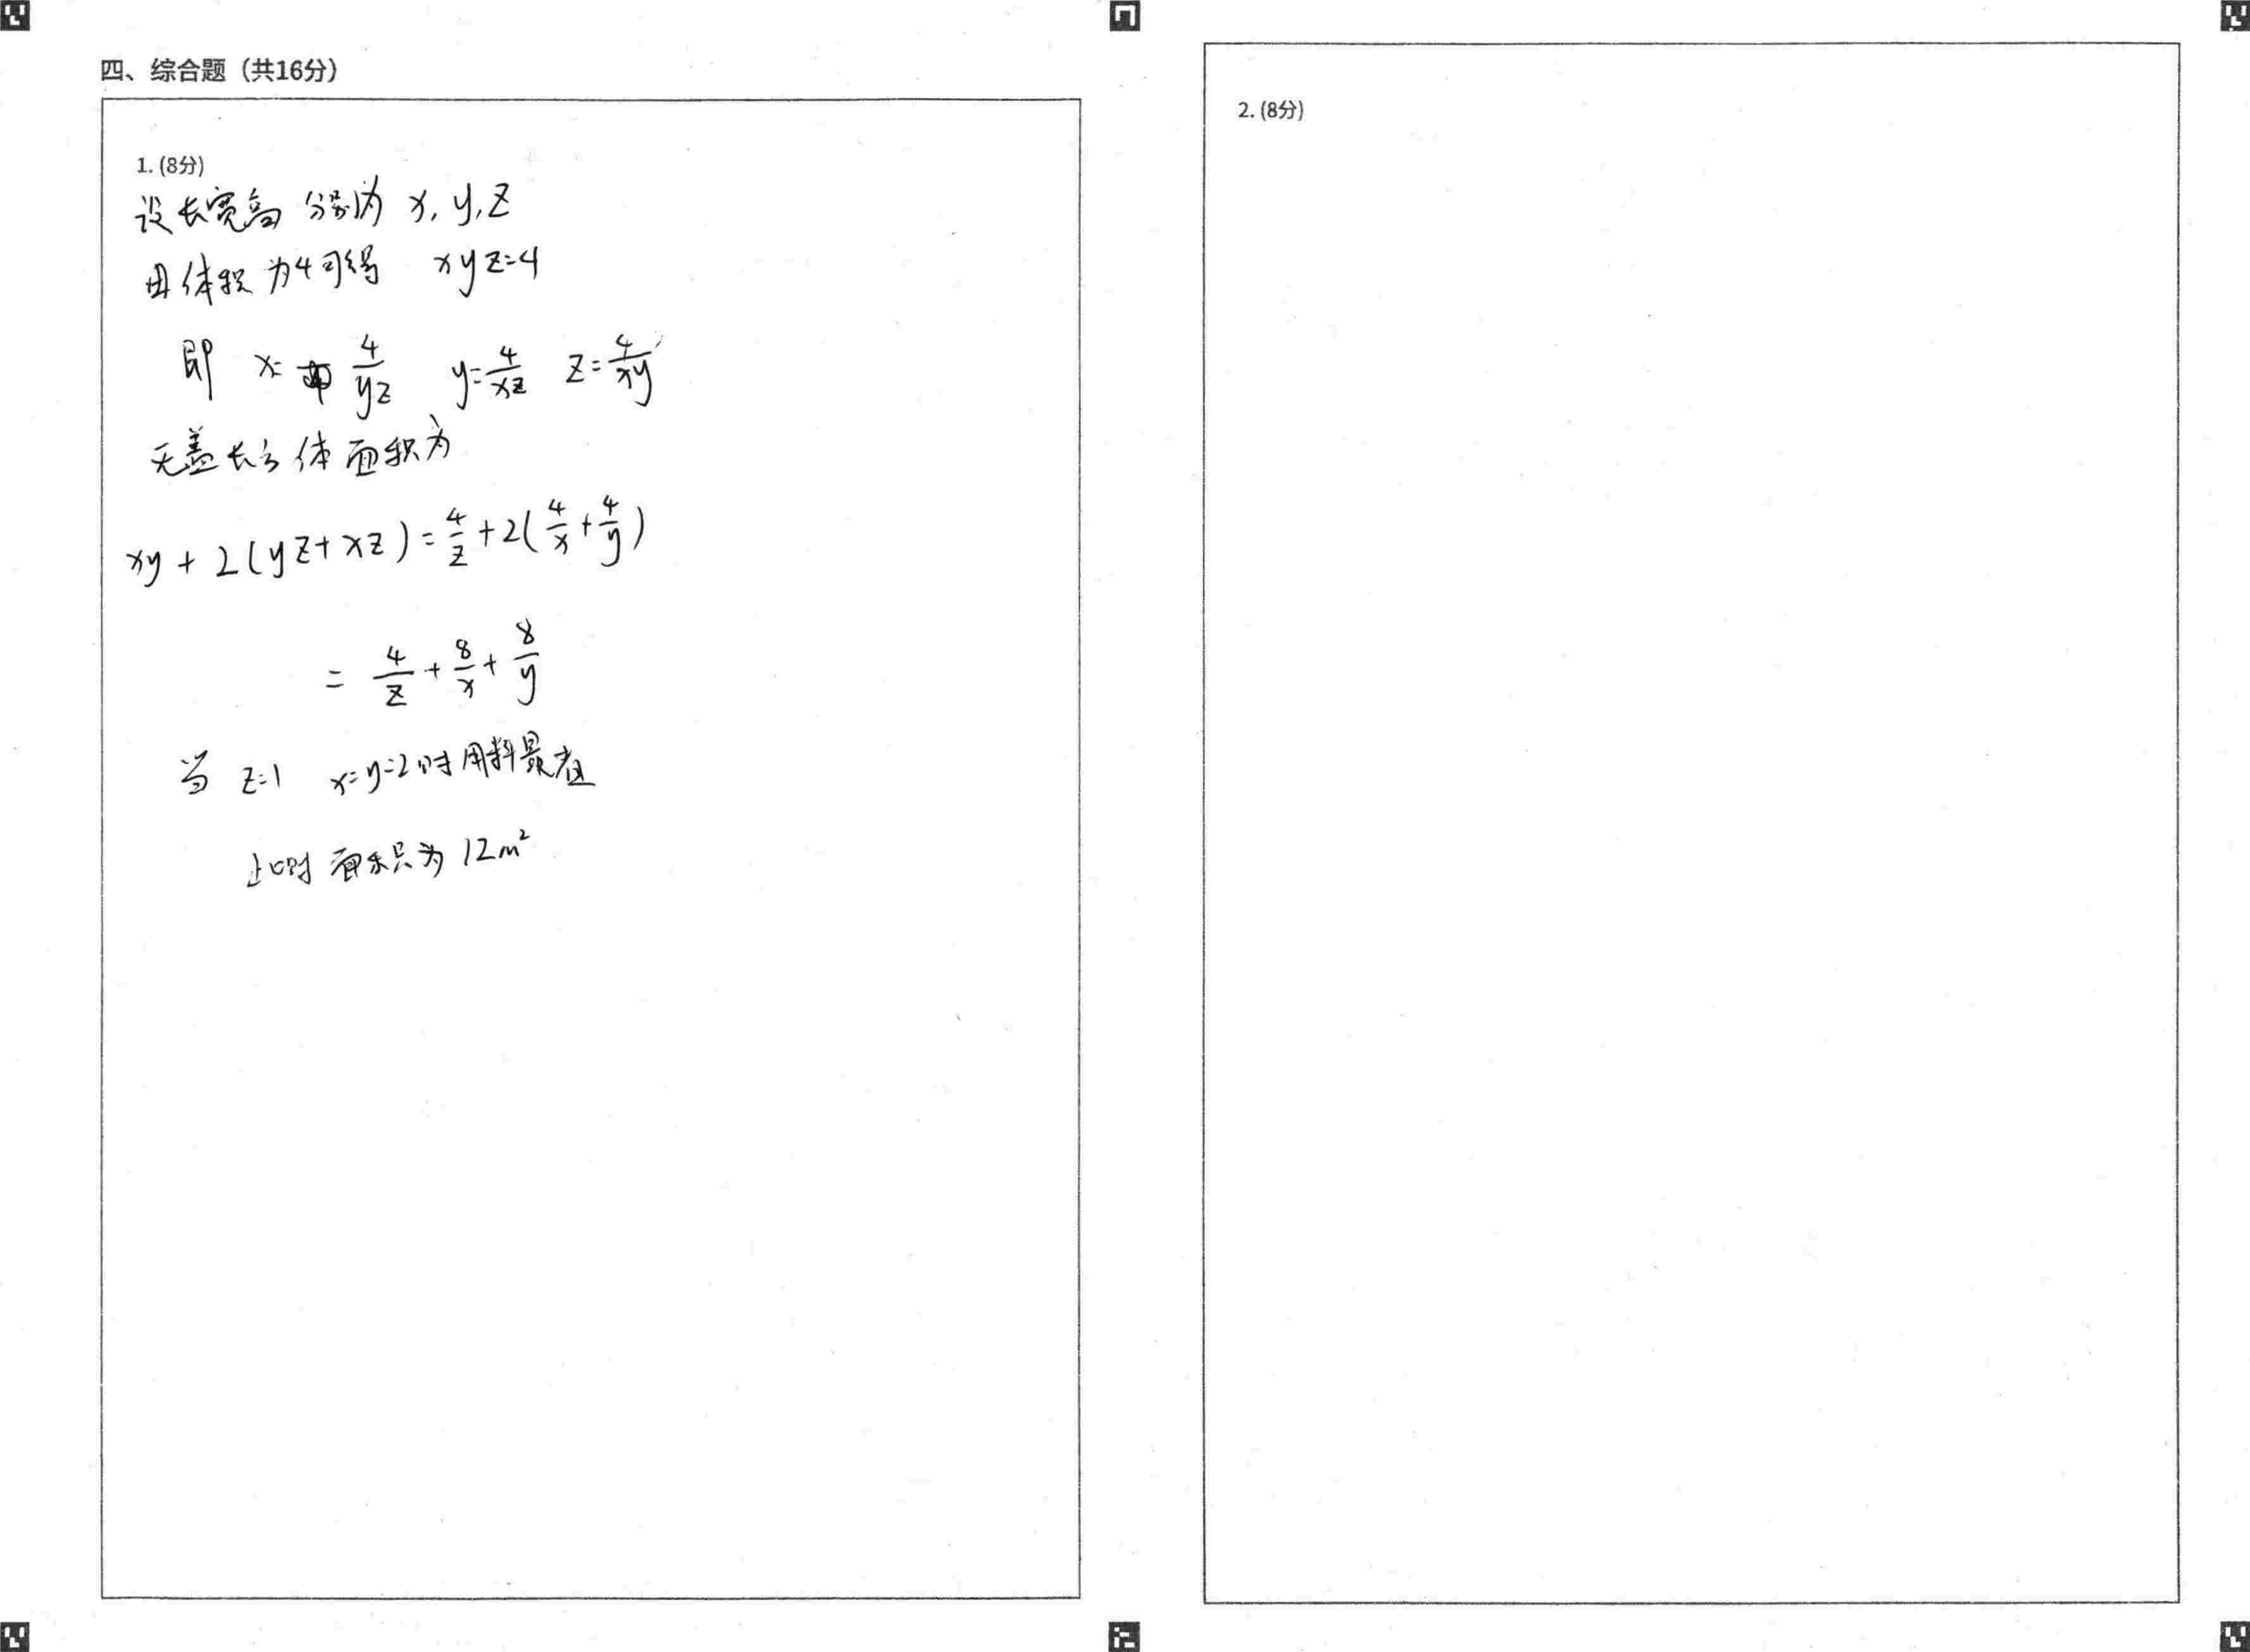 四、综合题（共16分）
1. (8分)
设长宽高 分别为 x, y, z
由体积为4可得 xyz=4
即 x= 4/yz y=4/xz z=4/xy
无盖长方体面积为
xy+2(yz+xz)=4/z+2(4/x+4/y)
= 4/z+8/x+8/y
当 z=1 x=y=2时用料最省
此时面积为12m²
2. (8分)